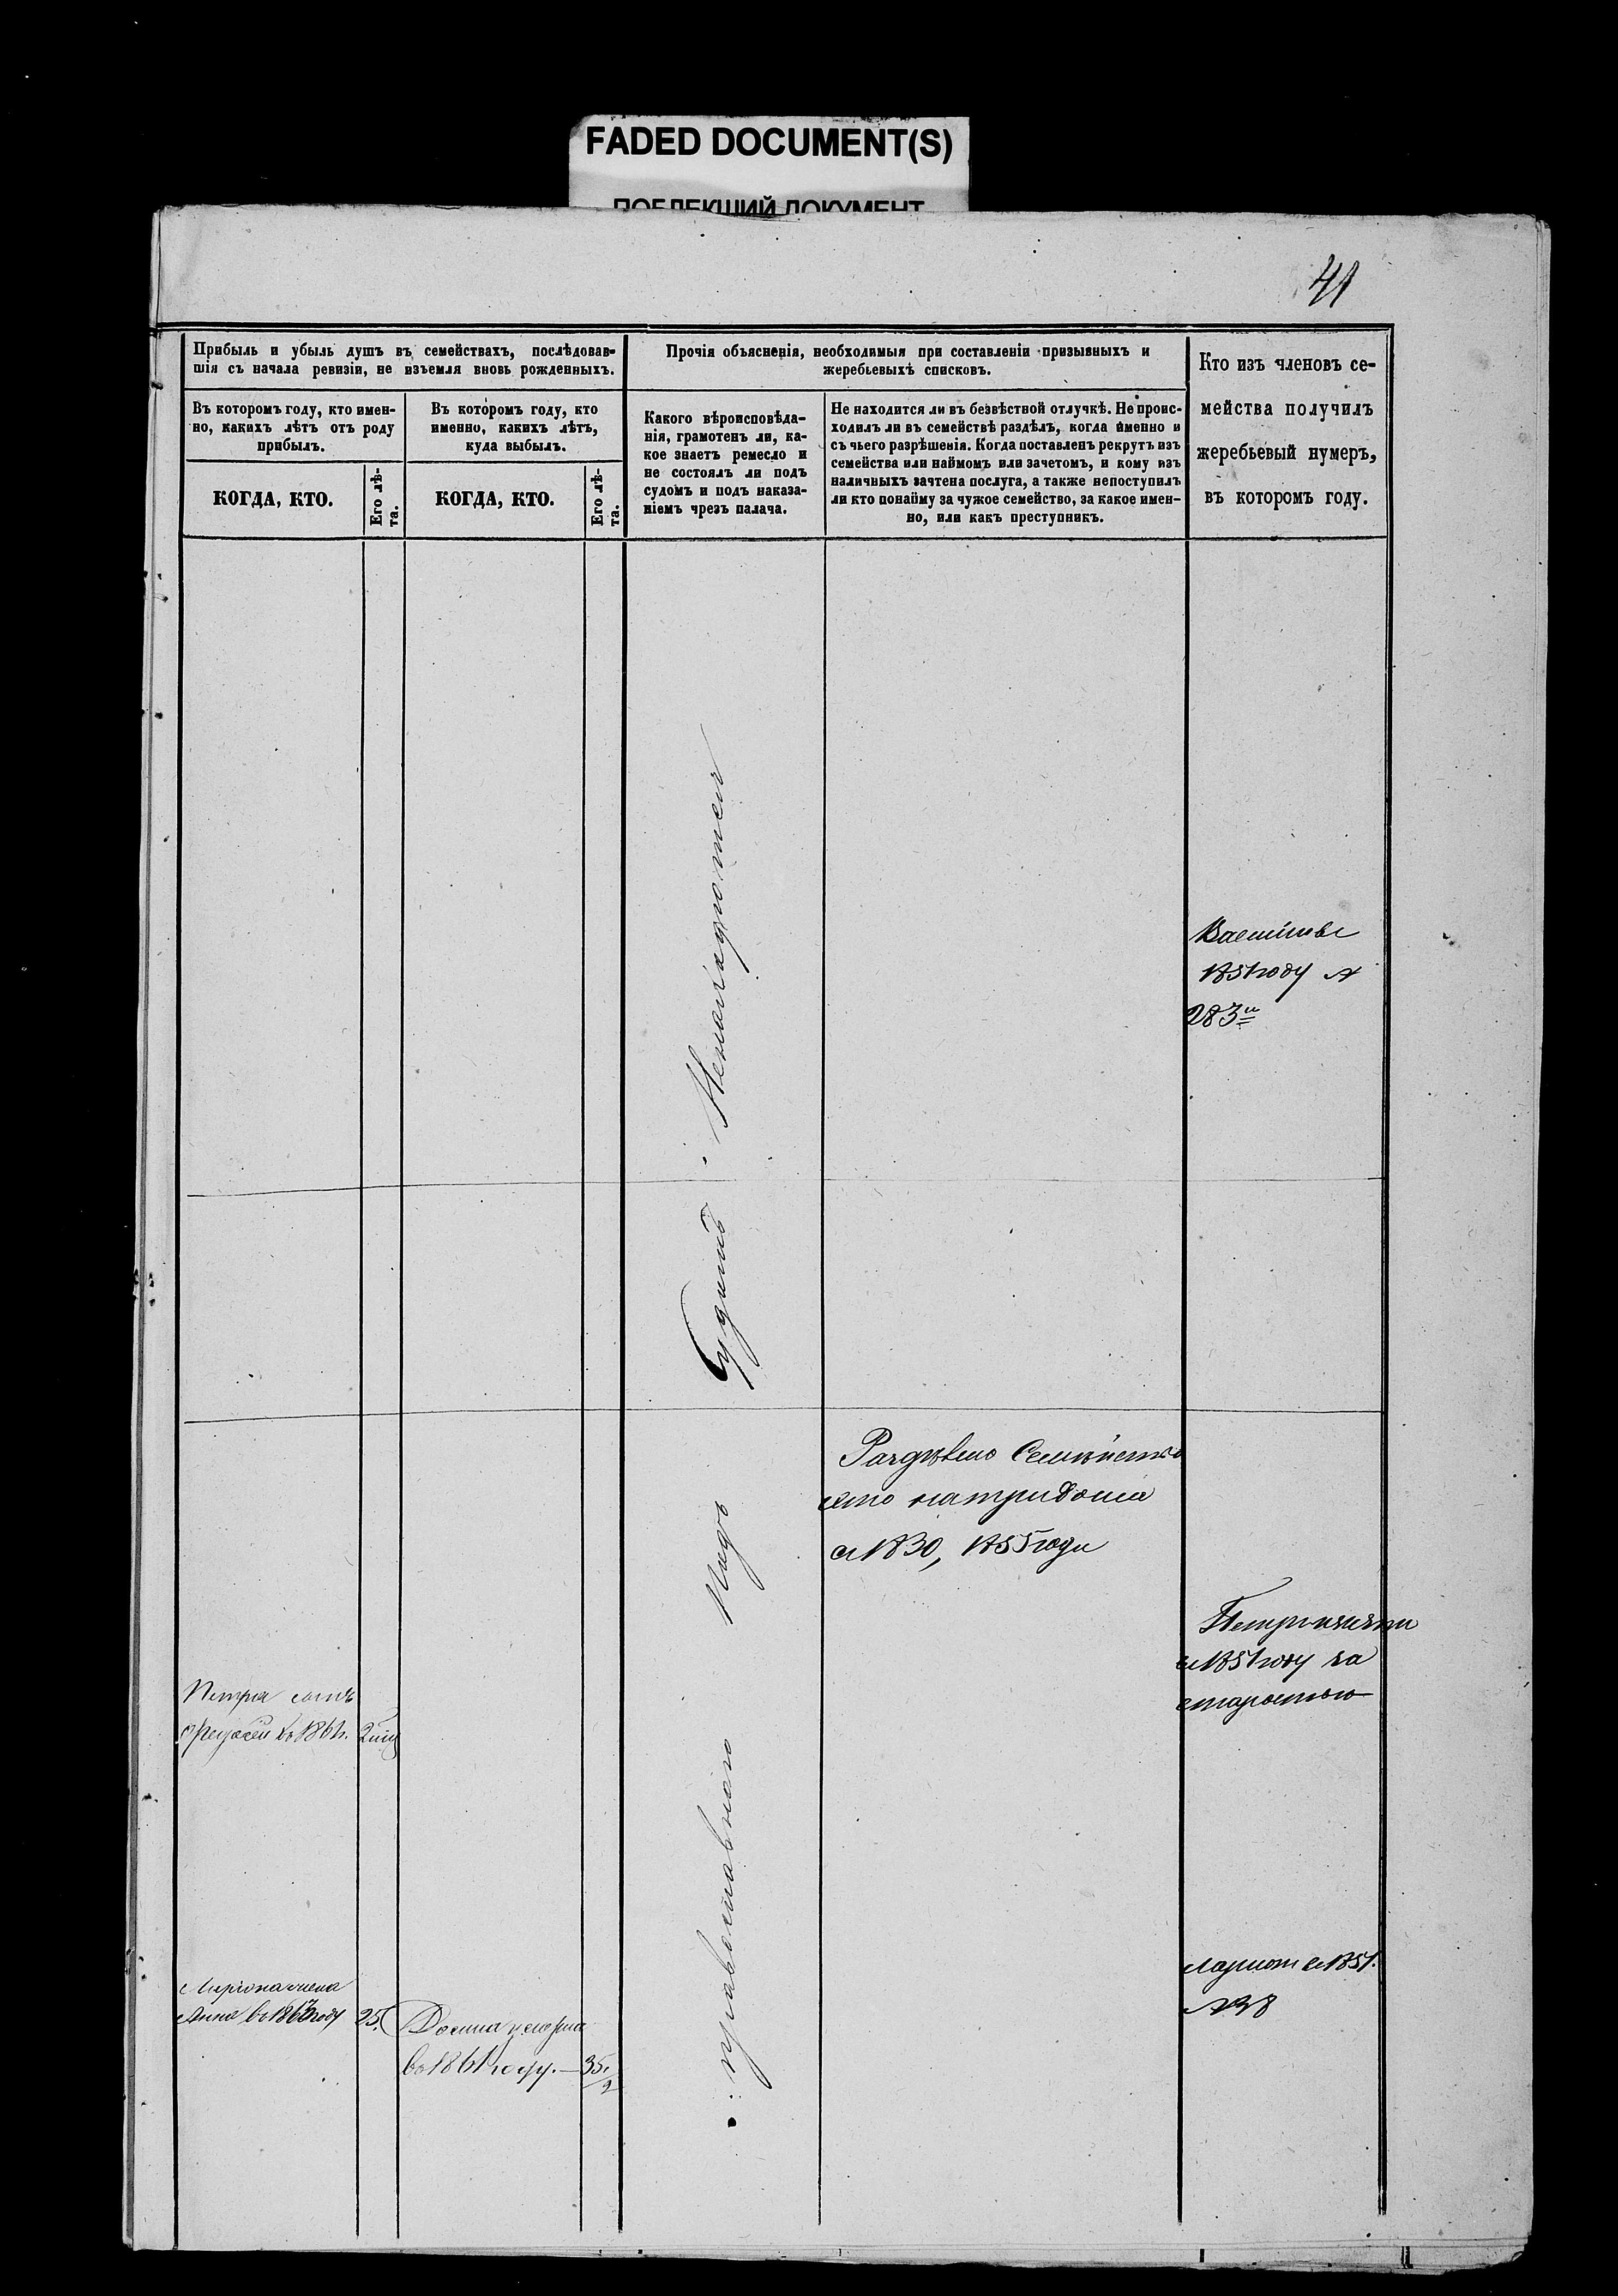 FADED DOCUMENT(S)
ПОБЛЕКШИЙ ДОКУМЕНТ
41
Прибыль и убыль душъ въ семействахъ, послѣдовав-
шія съ начала ревизіи, не изъемля вновь рожденныхъ.
Въ которомъ году, кто имен-
но, какихъ лѣтъ отъ роду
прибылъ.
КОГДА, КТО.
Его лѣ-
та.
Въ которомъ году, кто
именно, какихъ лѣтъ,
куда выбылъ.
КОГДА, КТО.
Его лѣ-
та.
Прочія объясненія, необходимыя при составленіи призывныхъ и
жеребьевыхъ списковъ.
Какого вѣроисповѣда-
нія, грамотенъ ли, ка-
кое знаетъ ремесло и
не состоялъ ли подъ
судомъ и подъ наказа-
ніемъ чрезъ палача.
Не находится ли въ безвѣстной отлучкѣ. Не проис-
ходилъ ли въ семействѣ раздѣлъ, когда именно и
съ чьего разрѣшенія. Когда поставленъ рекрутъ изъ
семейства или наймомъ или зачетомъ, и кому изъ
наличныхъ зачтена послуга, а также непоступилъ
ли кто понайму за чужое семейство, за какое имен-
но, или какъ преступникъ.
Кто изъ членовъ се-
мейства получилъ
жеребьевый нумеръ,
въ которомъ году.
православного
1851 году №
283й
Семѣйство
это на три дома
в 1830, 1855 годи
в 1851 году за
старостью
Петра сынъ
во 1861 г.
жена
Анна во 1863 году 25.
во 1861 году. — 35.
в 1851.
№ 38